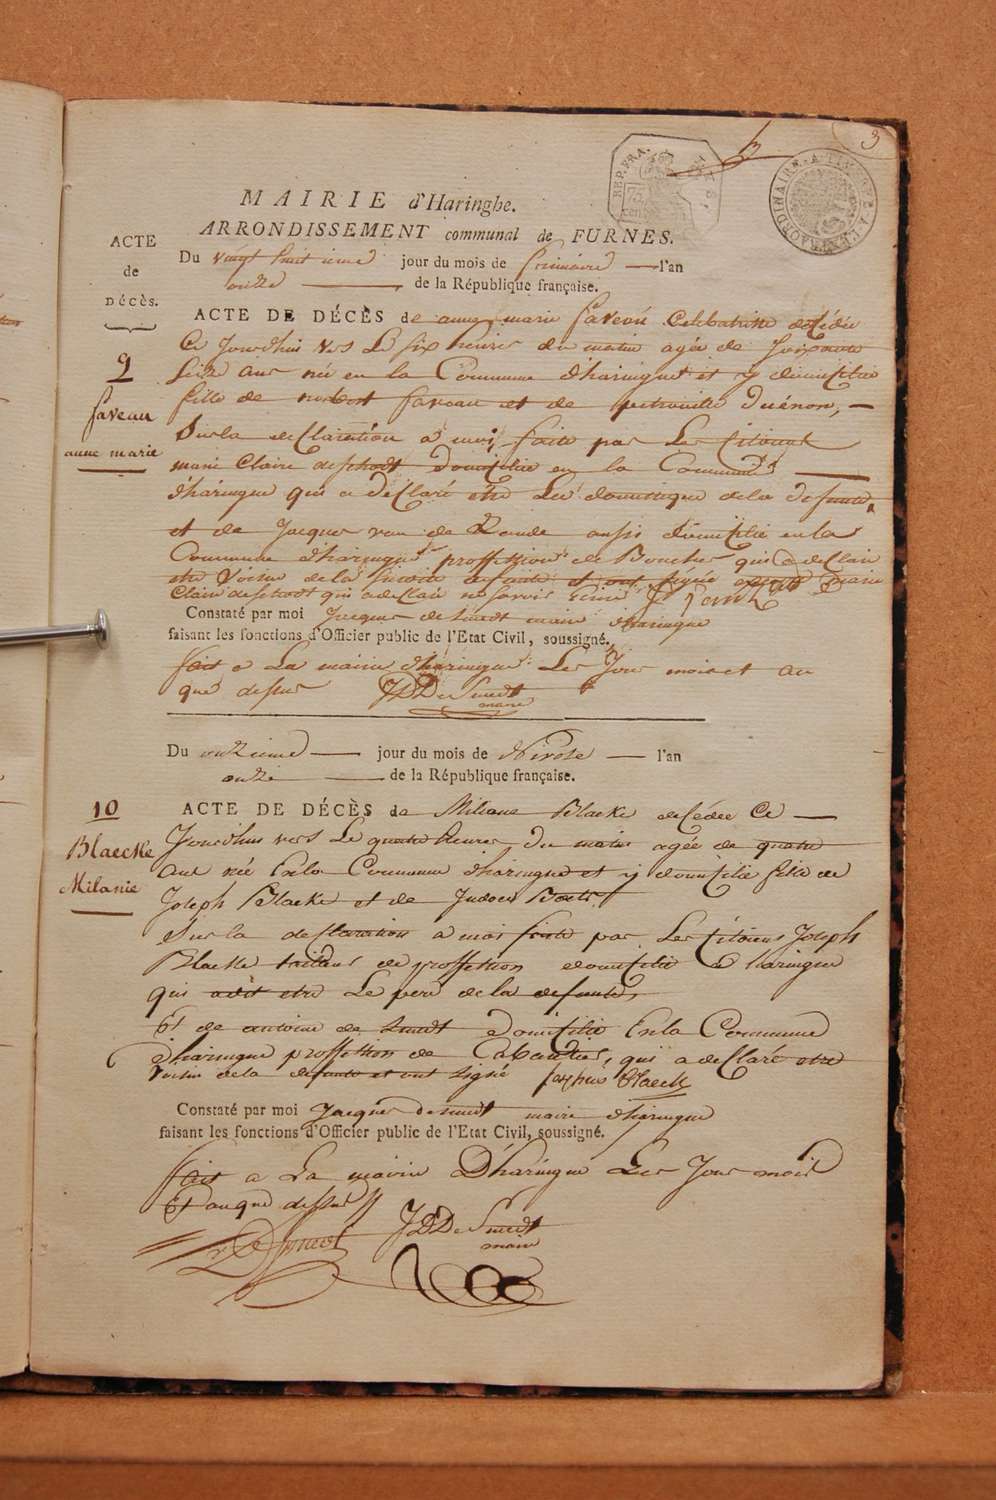 3
REP. FRA.
A TIMBRE A L'EXTRAORDINAIRE
MAIRIE d'Haringhe.
ARRONDISSEMENT communal de FURNES.
ACTE
de
DÉCÈS.
Du vingt huitieme jour du mois de frimaire l'an
onze de la République française.
ACTE DE DÉCÈS de anne marie faveau Celibatrice decédée
Ce Jourdhui vers Le six heures du matin agée de soixante
seize ans née en la Commune d'haringue et y domicilié
fille de norbert faveau et de petronille
9
faveau
anne marie
Sur la declaration a moi faite par Les Citoiens
marie Claire deschodt domicilie en la Commune
d'haringue qui a déClaré etre La domestique de la defunte
et de Jacques van de aussi domicilié en la
Commune d'haringue proffession de Boucher qui a declaré
etre voisin de la susdite defunte et ont signé excepté marie
Claire deschodt qui a declaré ne savoir ecrire
Constaté par moi Jacques desmedt maire d'haringue
faisant les fonctions d'Officier public de l'Etat Civil, soussigné.
fait a La mairie d'haringue Les Jour mois et an
que dessus JD De Smedt
maire
Du onzieme jour du mois de Nivose l'an
onze de la République française.
10
Blaecke
Milanie
ACTE DE DÉCÈS de Milane Blaeke decédée Ce
Jourdhui vers Le quatre heures du matin agée de quatre
ans née En la Commune d'haringue et y domicilié fille de
Joseph Blaeke et de Judoca
Sur la declaration a moi faite par Les Citoiens Joseph
Blaeke tailleur de proffession domicilié a haringue
qui a dit etre Le pere de la defunte,
Et de antoine de Smedt domicilié En la Commune
d'haringue proffession de Cabaretier, qui a declaré etre
voisin de la defunte et ont signé Blaeck
Constaté par moi Jacques desmedt maire d'haringue
faisant les fonctions d'Officier public de l'Etat Civil, soussigné.
fait a La mairie D'haringue Les Jour mois
Et an que dessus
De Smedt JD De Smedt
maire